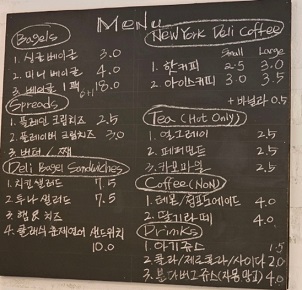 Menu
Bagels
1. 싱글 베이글 3.0
2. 미니 베이글 4.0
3. 베이글 1팩 6+1 18.0
Spreads
1. 플레인 크림치즈 2.5
2. 플레이버 크림치즈 3.0
3. 버터 / 잼
Deli Bagel Sandwiches
1. 치킨샐러드 7.5
2. 투나 샐러드 7.5
3. 햄 & 치즈
4. 클래식 훈제연어 샌드위치
10.0
New York Deli Coffee
Small Large
1. 핫커피 2.5 3.0
2. 아이스커피 3.0 3.5
+ 바닐라 0.5
Tea (Hot Only)
1. 얼그레이 2.5
2. 페퍼민트 2.5
3. 카모마일 2.5
Coffee (NON)
1. 레몬/ 4.0
2. 딸기라떼 4.0
Drinks
1. 아기쥬스 1.5
2. 콜라/제로콜라/사이다 2.0
3. 4.0